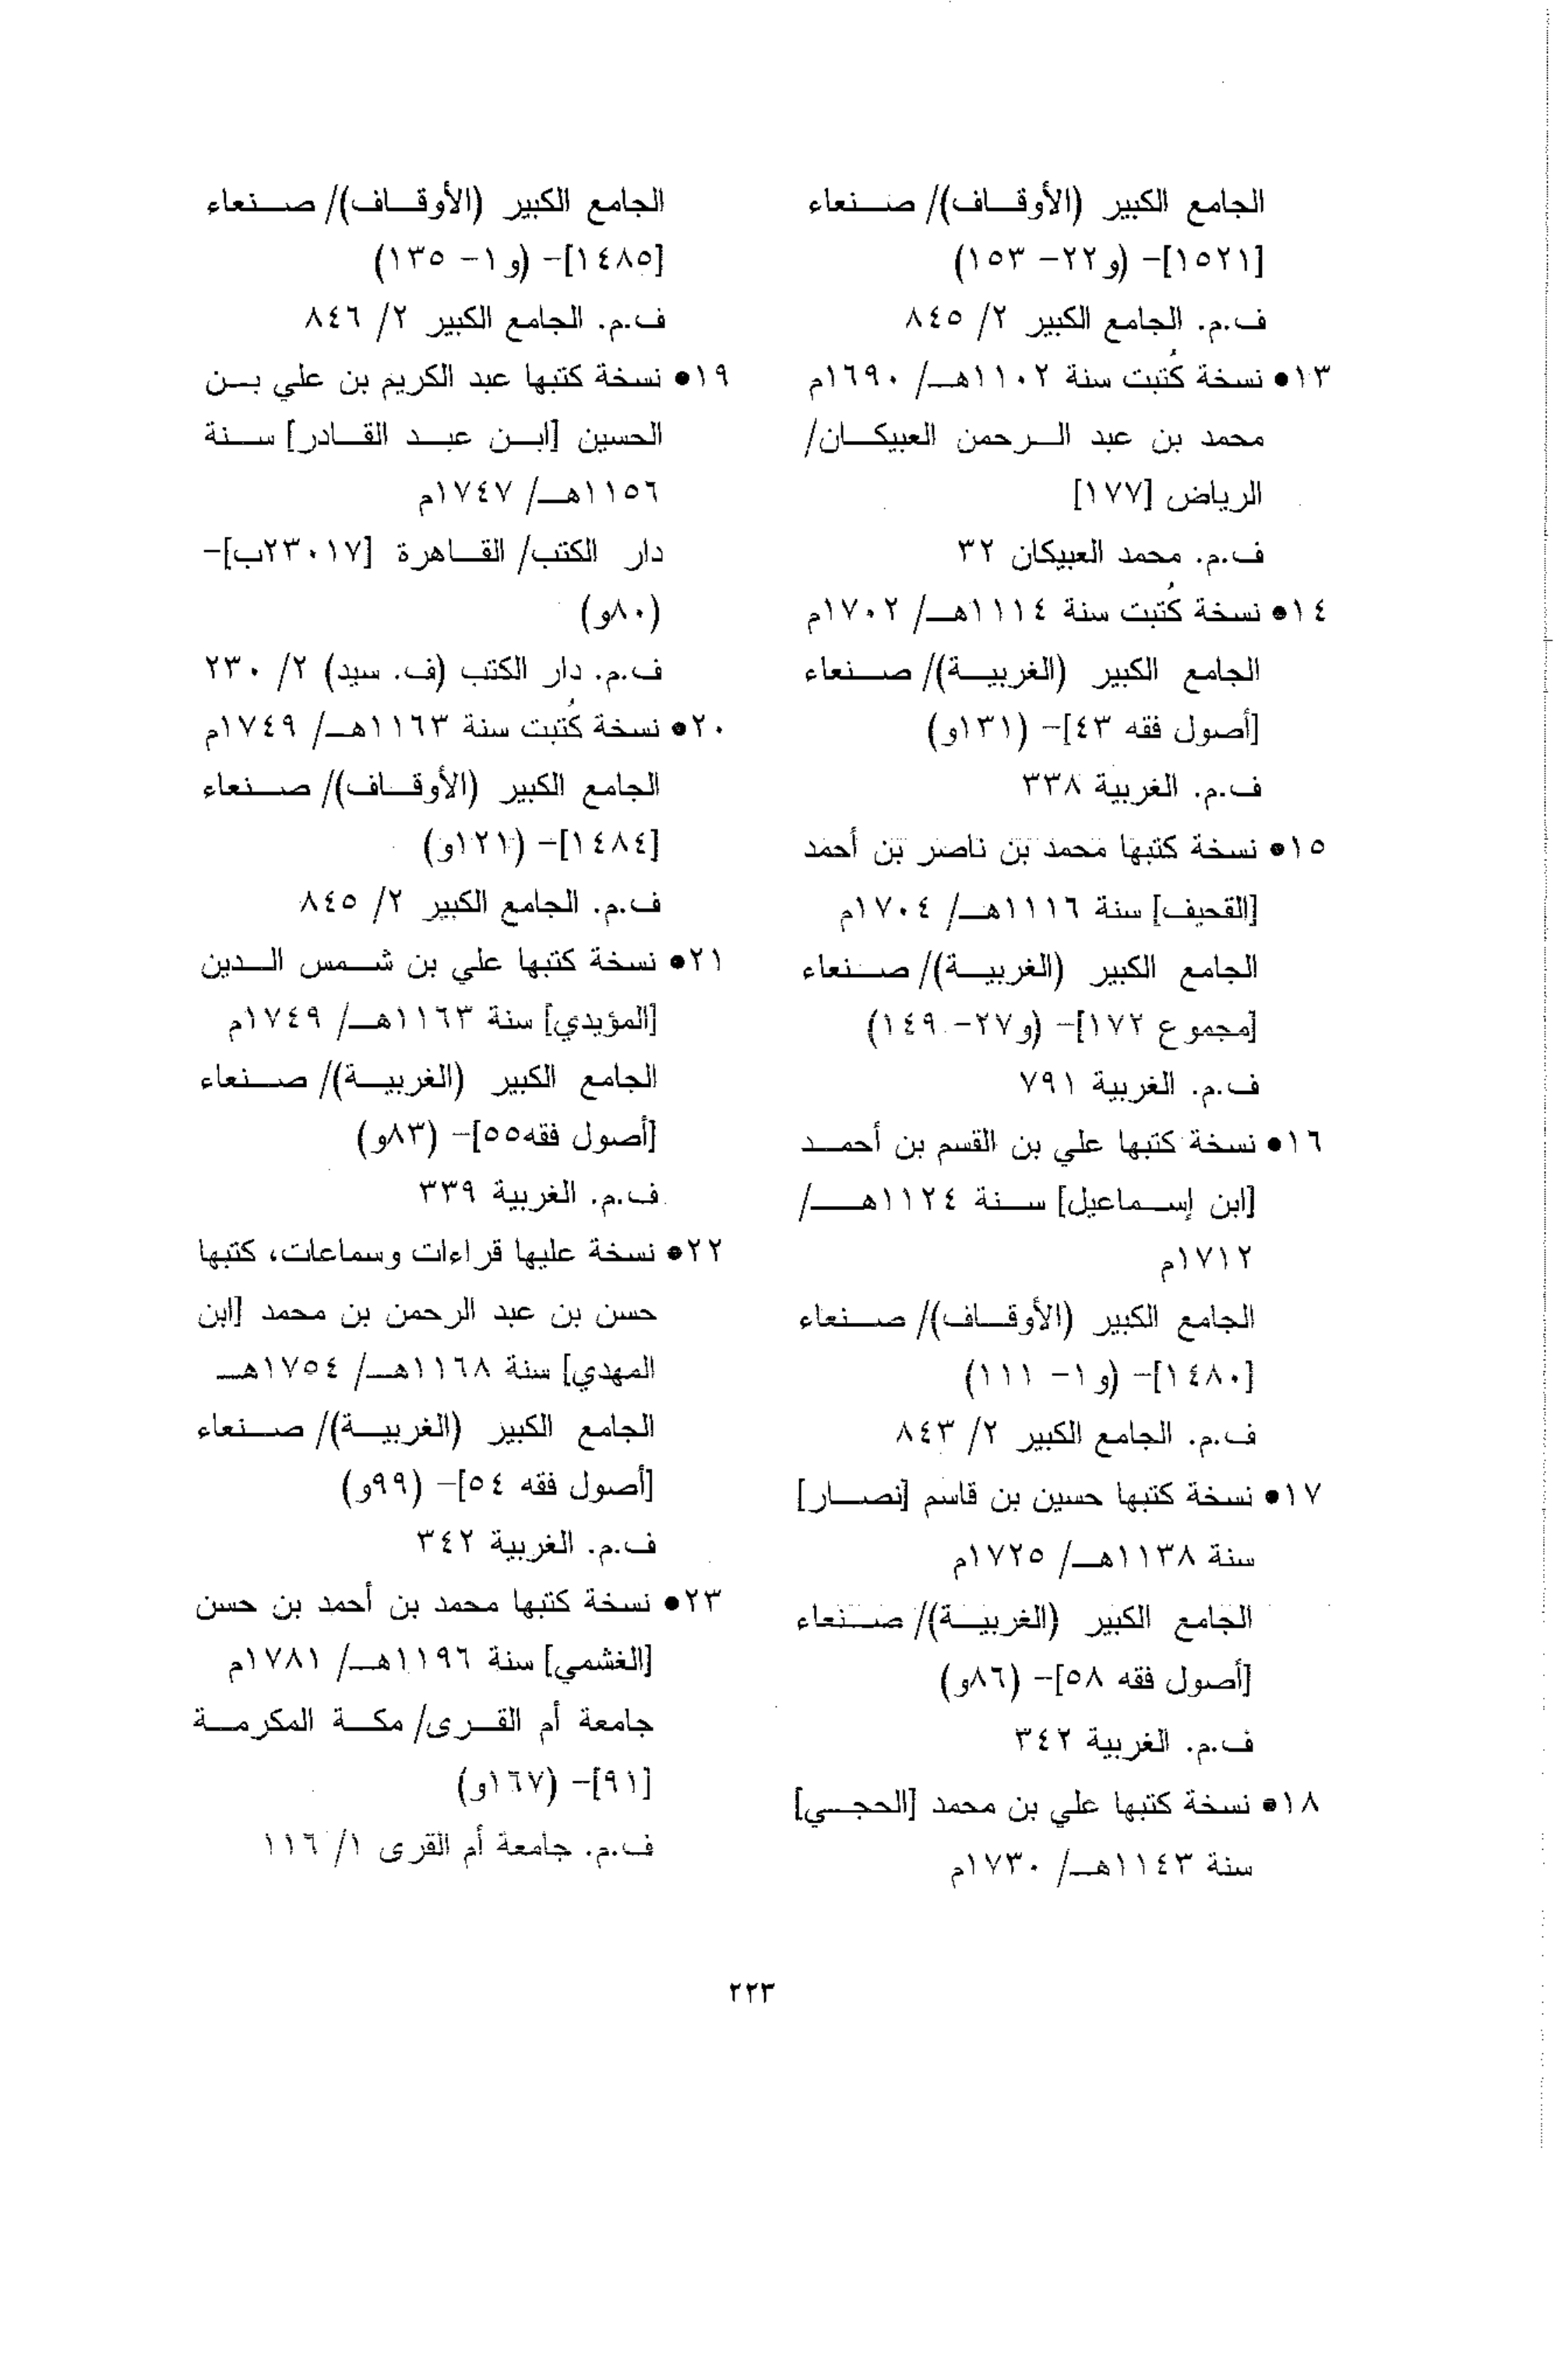 الجامع الكبير (الأوقاف)/ صنعاء
[١٥٢١]- (و٢٢- ١٥٣)
ف.م. الجامع الكبير ٢/ ٨٤٥
١٣• نسخة كُتبت سنة ١١٠٢هـ/ ١٦٩٠م
محمد بن عبد الرحمن العبيكان/
الرياض [١٧٧]
ف.م. محمد العبيكان ٣٢
١٤• نسخة كُتبت سنة ١١١٤هـ/ ١٧٠٢م
الجامع الكبير (الغربية)/ صنعاء
[أصول فقه ٤٣]- (١٣١و)
ف.م. الغربية ٣٣٨
١٥• نسخة كتبها محمد بن ناصر بن أحمد
[القحيف] سنة ١١١٦هـ/ ١٧٠٤م
الجامع الكبير (الغربية)/ صنعاء
[مجموع ١٧٢]- (و٢٧- ١٤٩)
ف.م. الغربية ٧٩١
١٦• نسخة كتبها علي بن القسم بن أحمد
[ابن إسماعيل] سنة ١١٢٤هـ/
١٧١٢م
الجامع الكبير (الأوقاف)/ صنعاء
[١٤٨٠]- (و١- ١١١)
ف.م. الجامع الكبير ٢/ ٨٤٣
١٧• نسخة كتبها حسين بن قاسم [نصار]
سنة ١١٣٨هـ/ ١٧٢٥م
الجامع الكبير (الغربية)/ صنعاء
[أصول فقه ٥٨]- (٨٦و)
ف.م. الغربية ٣٤٢
١٨• نسخة كتبها علي بن محمد [الحجي]
سنة ١١٤٣هـ/ ١٧٣٠م
الجامع الكبير (الأوقاف)/ صنعاء
[١٤٨٥]- (و١- ١٣٥)
ف.م. الجامع الكبير ٢/ ٨٤٦
١٩• نسخة كتبها عبد الكريم بن علي بن
الحسين [ابن عبد القادر] سنة
١١٥٦هـ/ ١٧٤٧م
دار الكتب/ القاهرة [٢٣٠١٧ب]-
(٨٠و)
ف.م. دار الكتب (ف. سيد) ٢/ ٢٣٠
٢٠• نسخة كُتبت سنة ١١٦٣هـ/ ١٧٤٩م
الجامع الكبير (الأوقاف)/ صنعاء
[١٤٨٤]- (١٢١و)
ف.م. الجامع الكبير ٢/ ٨٤٥
٢١• نسخة كتبها علي بن شمس الدين
[المؤيدي] سنة ١١٦٣هـ/ ١٧٤٩م
الجامع الكبير (الغربية)/ صنعاء
[أصول فقه٥٥]- (٨٣و)
ف.م. الغربية ٣٣٩
٢٢• نسخة عليها قراءات وسماعات، كتبها
حسن بن عبد الرحمن بن محمد [ابن
المهدي] سنة ١١٦٨هـ/ ١٧٥٤هـ
الجامع الكبير (الغربية)/ صنعاء
[أصول فقه ٥٤]- (٩٩و)
ف.م. الغربية ٣٤٢
٢٣• نسخة كتبها محمد بن أحمد بن حسن
[الغشمي] سنة ١١٩٦هـ/ ١٧٨١م
جامعة أم القرى/ مكة المكرمة
[٩١]- (١٦٧و)
ف.م. جامعة أم القرى ١/ ١١٦
٢٢٣